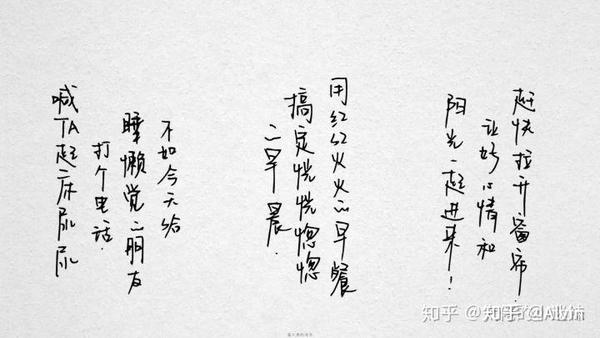 赶快拉开窗帘，
让好心情和
阳光一起进来！
用红红火火的早餐
搞定恍恍惚惚
的早晨.
不如今天给
睡懒觉的朋友
打个电话.
喊TA起床尿尿
知乎
知乎